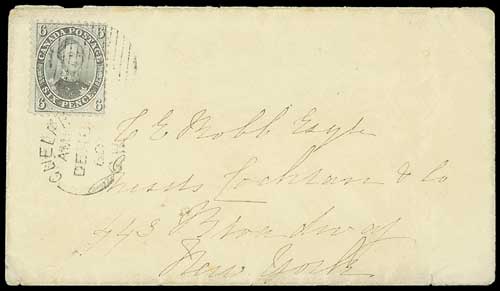 6 CANADA POSTAGE 6
6 SIX PENCE 6
GUELPH
C E Robb Esqre
Messrs Cochran & Co
443 Broadway
New York